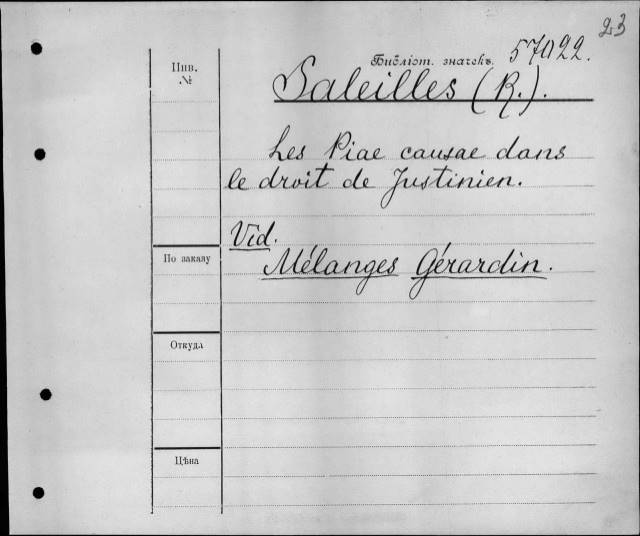 23
Инв.
№
Библіот. значекъ 57022.
Saleilles (R.).
Les Piae causae dans
le droit de Justinien.
Vid.
Mélanges Gérardin.
По заказу
Откуда
Цѣна